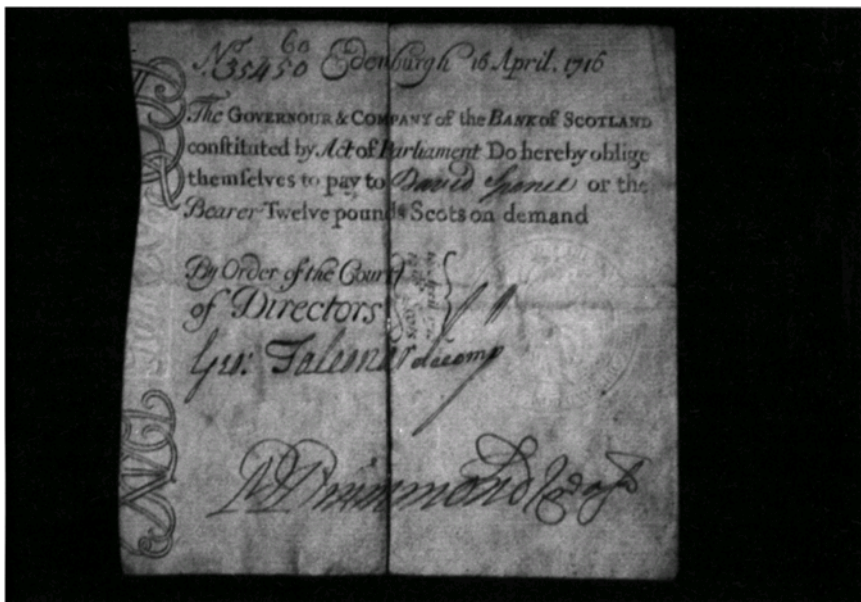 60
No. 35450 Edenburgh 16 April. 1716
The GOVERNOUR & COMPANY of the BANK of SCOTLAND
constituted by Act of Parliament Do hereby oblige
themselves to pay to David Spence or the
Bearer Twelve pounds Scots on demand
By Order of the Court
of Directors
Drummond